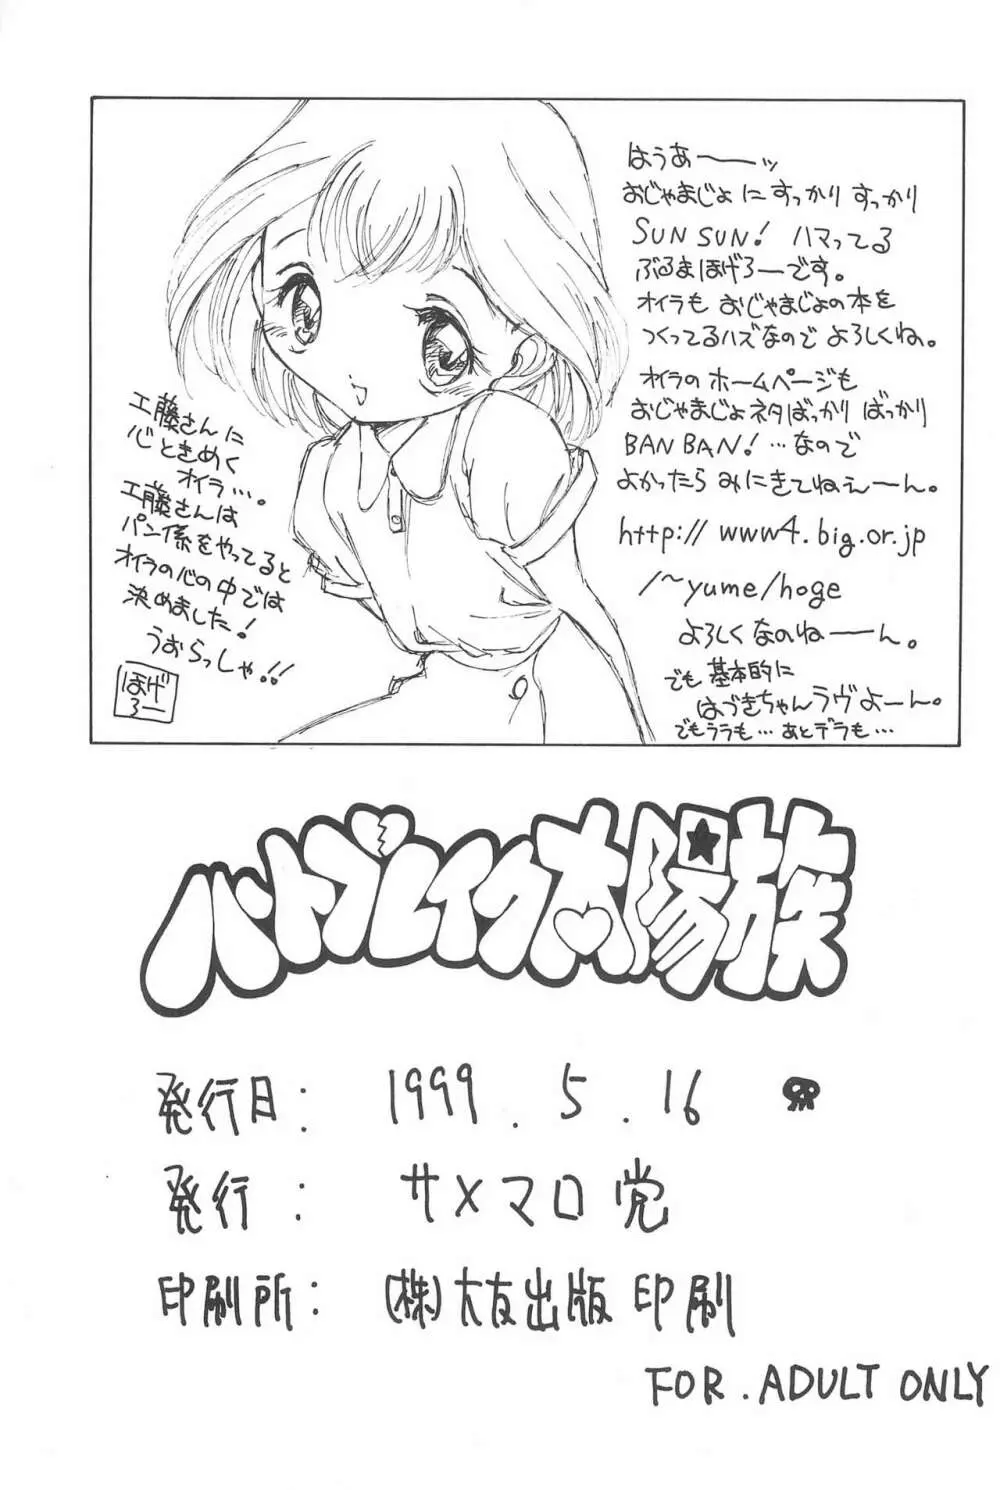 はうあーーッ
おじゃまじょ に すっかり すっかり
SUN SUN! ハマってる
ぶるまほげろーです。
オイラも おじゃまじょの本を
つくってるハズなので よろしくね。
オイラの ホームページも
おじゃまじょネタばっかり ばっかり
BAN BAN! …なので
よかったら みにきてねぇーん。
http:// www4.big.or.jp
/~yume/hoge
よろしくなのねーーん。
でも 基本的に
はづきちゃんラヴよーん。
でもララも… あとデラも…
工藤さんに
心ときめく
オイラ…。
工藤さんは
パン係をやってると
オイラの心の中では
決めました!
うおらっしゃ!!
ほげ
ろー
ハートブレイク太陽族
発行日: 1999. 5. 16
発行: サメマロ党
印刷所: (株)大友出版印刷
FOR. ADULT ONLY